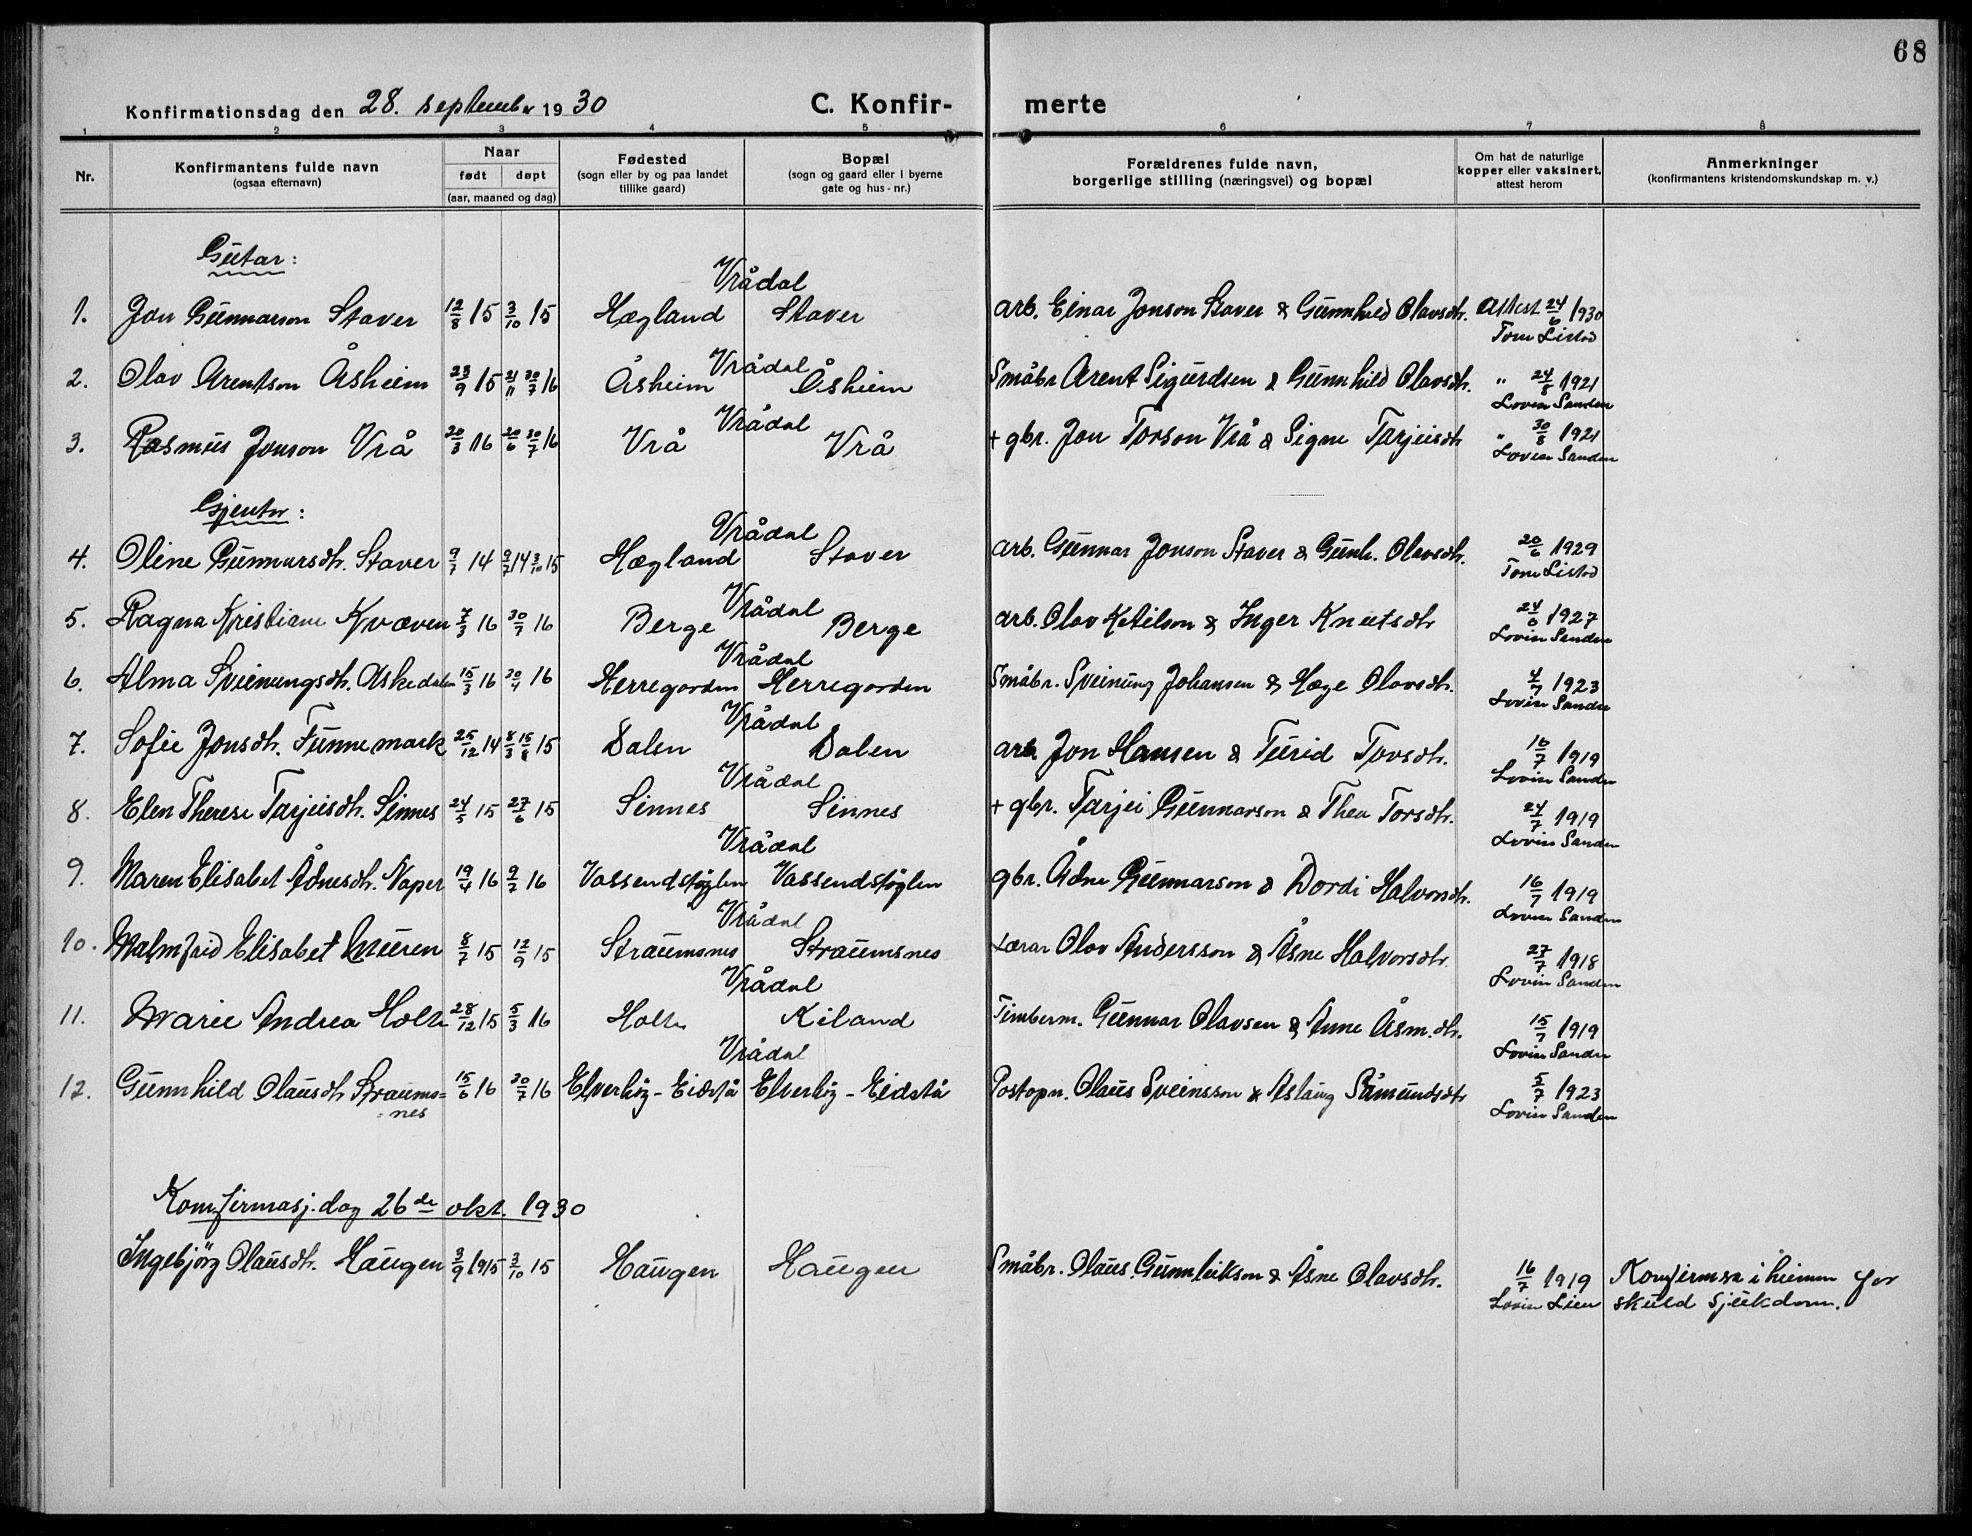 68
Konfirmationsdag den 28. september 1930 C. Konfir- merte
1 2 3 4 5 6 7 8
Nr.
Konfirmantens fulde navn
(ogsaa efternavn)
Naar
født døpt
(aar, maaned og dag)
Fødested
(sogn eller by og paa landet
tillike gaard)
Bopæl
(sogn og gaard eller i byerne
gate og hus-nr.)
Forældrenes fulde navn,
borgerlige stilling (næringsvei) og bopæl
Om hat de naturlige
kopper eller vaksinert,
attest herom
Anmerkninger
(konfirmantens kristendomskundskap m. v.)
Gutar:
Vrådal
1. Jon Gunnarson Staver 12/8 15 3/10 15 Hægland Staver arb. Einar Jonson Staver & Gunnhild Olavsdt. Attest 24/6 1930
Tone Listod
Vrådal
2. Olav Arentson Åsheim 23/9 15 21/11 30/7 16 Åsheim Åsheim Småbr. Arent Sigurdsen & Gunnhild Olavsdt. " 24/8 1921
Lovise Sanden
Vrådal
3. Rasmus Jonson Vrå 20/3 16 20/6 30/7 16 Vrå Vrå + gbr. Jon Torson Vrå & Signe Tarjeisdt " 30/8 1921
Lovise Sanden
Gjentor:
Vrådal
4. Oline Gunnarsdt. Staver 9/7 14 9/7 14 3/10 15 Hægland Staver arb. Gunnar Jonson Staver & Gunh. Olavsdt. 20/6 1929
Tone Listod
Vrådal
5. Ragna Kristiane Kvæven 7/3 16 30/7 16 Berge Berge arb. Olav Ketilson & Inger Knutsdt 24/6 1927
Lovise Sanden
Vrådal
6. Alma Sveinungsdt. Askedalen 15/3 16 30/4 16 Herregorden Herregorden Småbr. Sveinung Johansen & Hæge Olavsdt. 4/7 1923
Lovise Sanden
Vrådal
7. Sofie Jonsdt. Funnemark 25/12 14 8/3 15/8 15 Dalen Dalen arb. Jon Hansen & Turid Tovsdt. 16/7 1919
Lovise Sanden
Vrådal
8. Elen Therese Tarjeisdt. Sinnes 24/5 15 27/6 15 Sinnes Sinnes + gbr. Tarjei Gunnarson & Thea Torsdt. 24/7 1919
Lovise Sanden
Vrådal
9. Maren Elisabet Ådnesdt. Naper 19/4 16 9/7 16 Vassendstøglen Vassendstøglen gbr. Ådne Gunnarson & Dordi Halvorsdt. 16/7 1919
Lovise Sanden
Vrådal
10. Malmfrid Elisabet Muren 8/7 15 12/9 15 Straumsnes Straumsnes Lærar Olav Andersson & Åsne Halvorsdt. 27/7 1918
Lovise Sanden
Vrådal
11. Marie Andrea Holte 28/12 15 5/3 16 Holte Kiland Timberm. Gunnar Olavsen & Anne Åsm.dt. 15/7 1919
Lovise Sanden
Vrådal
12. Gunnhild Olausdt Straums= 15/6 16 30/7 16 Elverhøg - Eidstå Elverhøg - Eidstå Postopn. Olaus Sveinsson & Aslaug Såmundsdt 5/7 1923
=nes Lovise Sanden
Komfirmasj.dag 26de okt. 1930
Ingebjörg Olausdt. Haugen 3/9 1915 3/10 15 Haugen Haugen Småbr. Olaus Gunnleikson & Åsne Olavsdt. 16/7 1919 Komfirmera i heimen for
Lovise Lien skuld sjukdom.